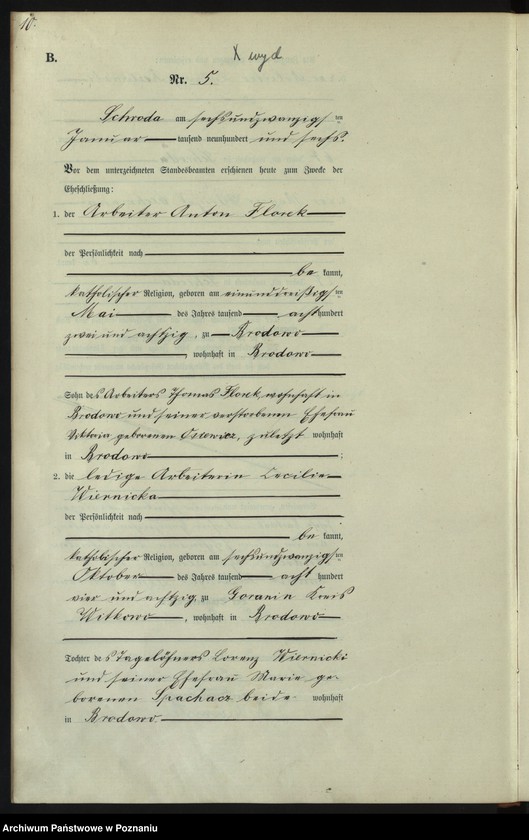 10.
B.
X wyd
Nr. 5.
Schroda am sechsundzwanzigsten
Januar tausend neunhundert und sechs.
Vor dem unterzeichneten Standesbeamten erschienen heute zum Zwecke der
Eheschließung:
1. der Arbeiter Anton Florek
der Persönlichkeit nach
be kannt,
katholischer Religion, geboren am einunddreißigsten
Mai des Jahres tausend acht hundert
zwei und achtzig, zu Brodowo
, wohnhaft in Brodowo
Sohn des Arbeiters Thomas Florek, wohnhaft in
Brodowo und seiner verstorbenen Ehefrau
Viktoria geborenen zuletzt wohnhaft
in Brodowo ;
2. die ledige Arbeiterin Cecilie
Wiernicka
der Persönlichkeit nach
be kannt,
katholischer Religion, geboren am sechsundzwanzigsten
Oktober des Jahres tausend acht hundert
vier und achtzig zu Goranin Kreis
Witkowo , wohnhaft in Brodowo
Tochter des Tagelöhners Lorenz Wiernicki
und seiner Ehefrau Marie ge-
borenen Spachacz beide wohnhaft
in Brodowo.
Archiwum Państwowe w Poznaniu